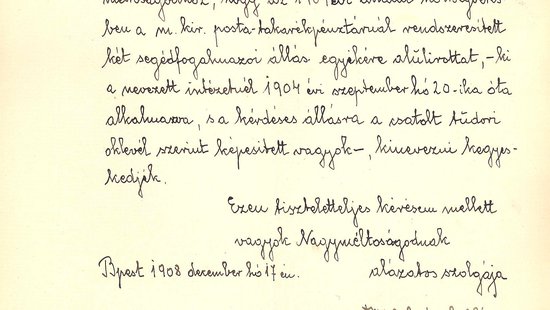 hogy az 1909 évi
ben a m. kir. posta-takarékpénztárnál rendszeresitett
két segédfogalmazói állás egyikére alulirottat, -ki
a nevezett intézetnél 1904 évi szeptember hó 20-ika óta
alkalmazva, s a kérdéses állásra a csatolt tudori
oklevél szerint képesitett vagyok-, kinevezni kegyes-
kedjék.
Ezen tiszteletteljes kérésem mellett
vagyok Nagyméltóságodnak
Bpest 1908 december hó 17 én. alázatos szolgája